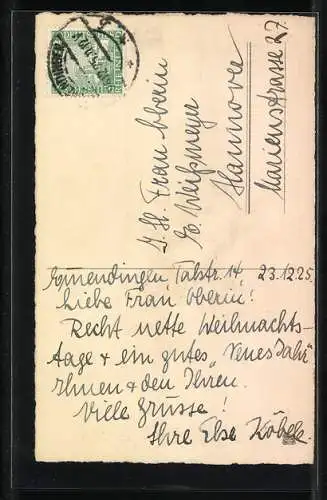 I. H. Frau Oberin
E. Weißmeyer
Hannover
Marienstrasse 27.
Emmendingen, Talstr. 14, 23.12.25.
Liebe Frau Oberin!
Recht nette Weihnachts-
tage + ein gutes "Neues Jahr"
Ihnen + den Ihren.
Viele Grüsse!
Ihre Else Köbele